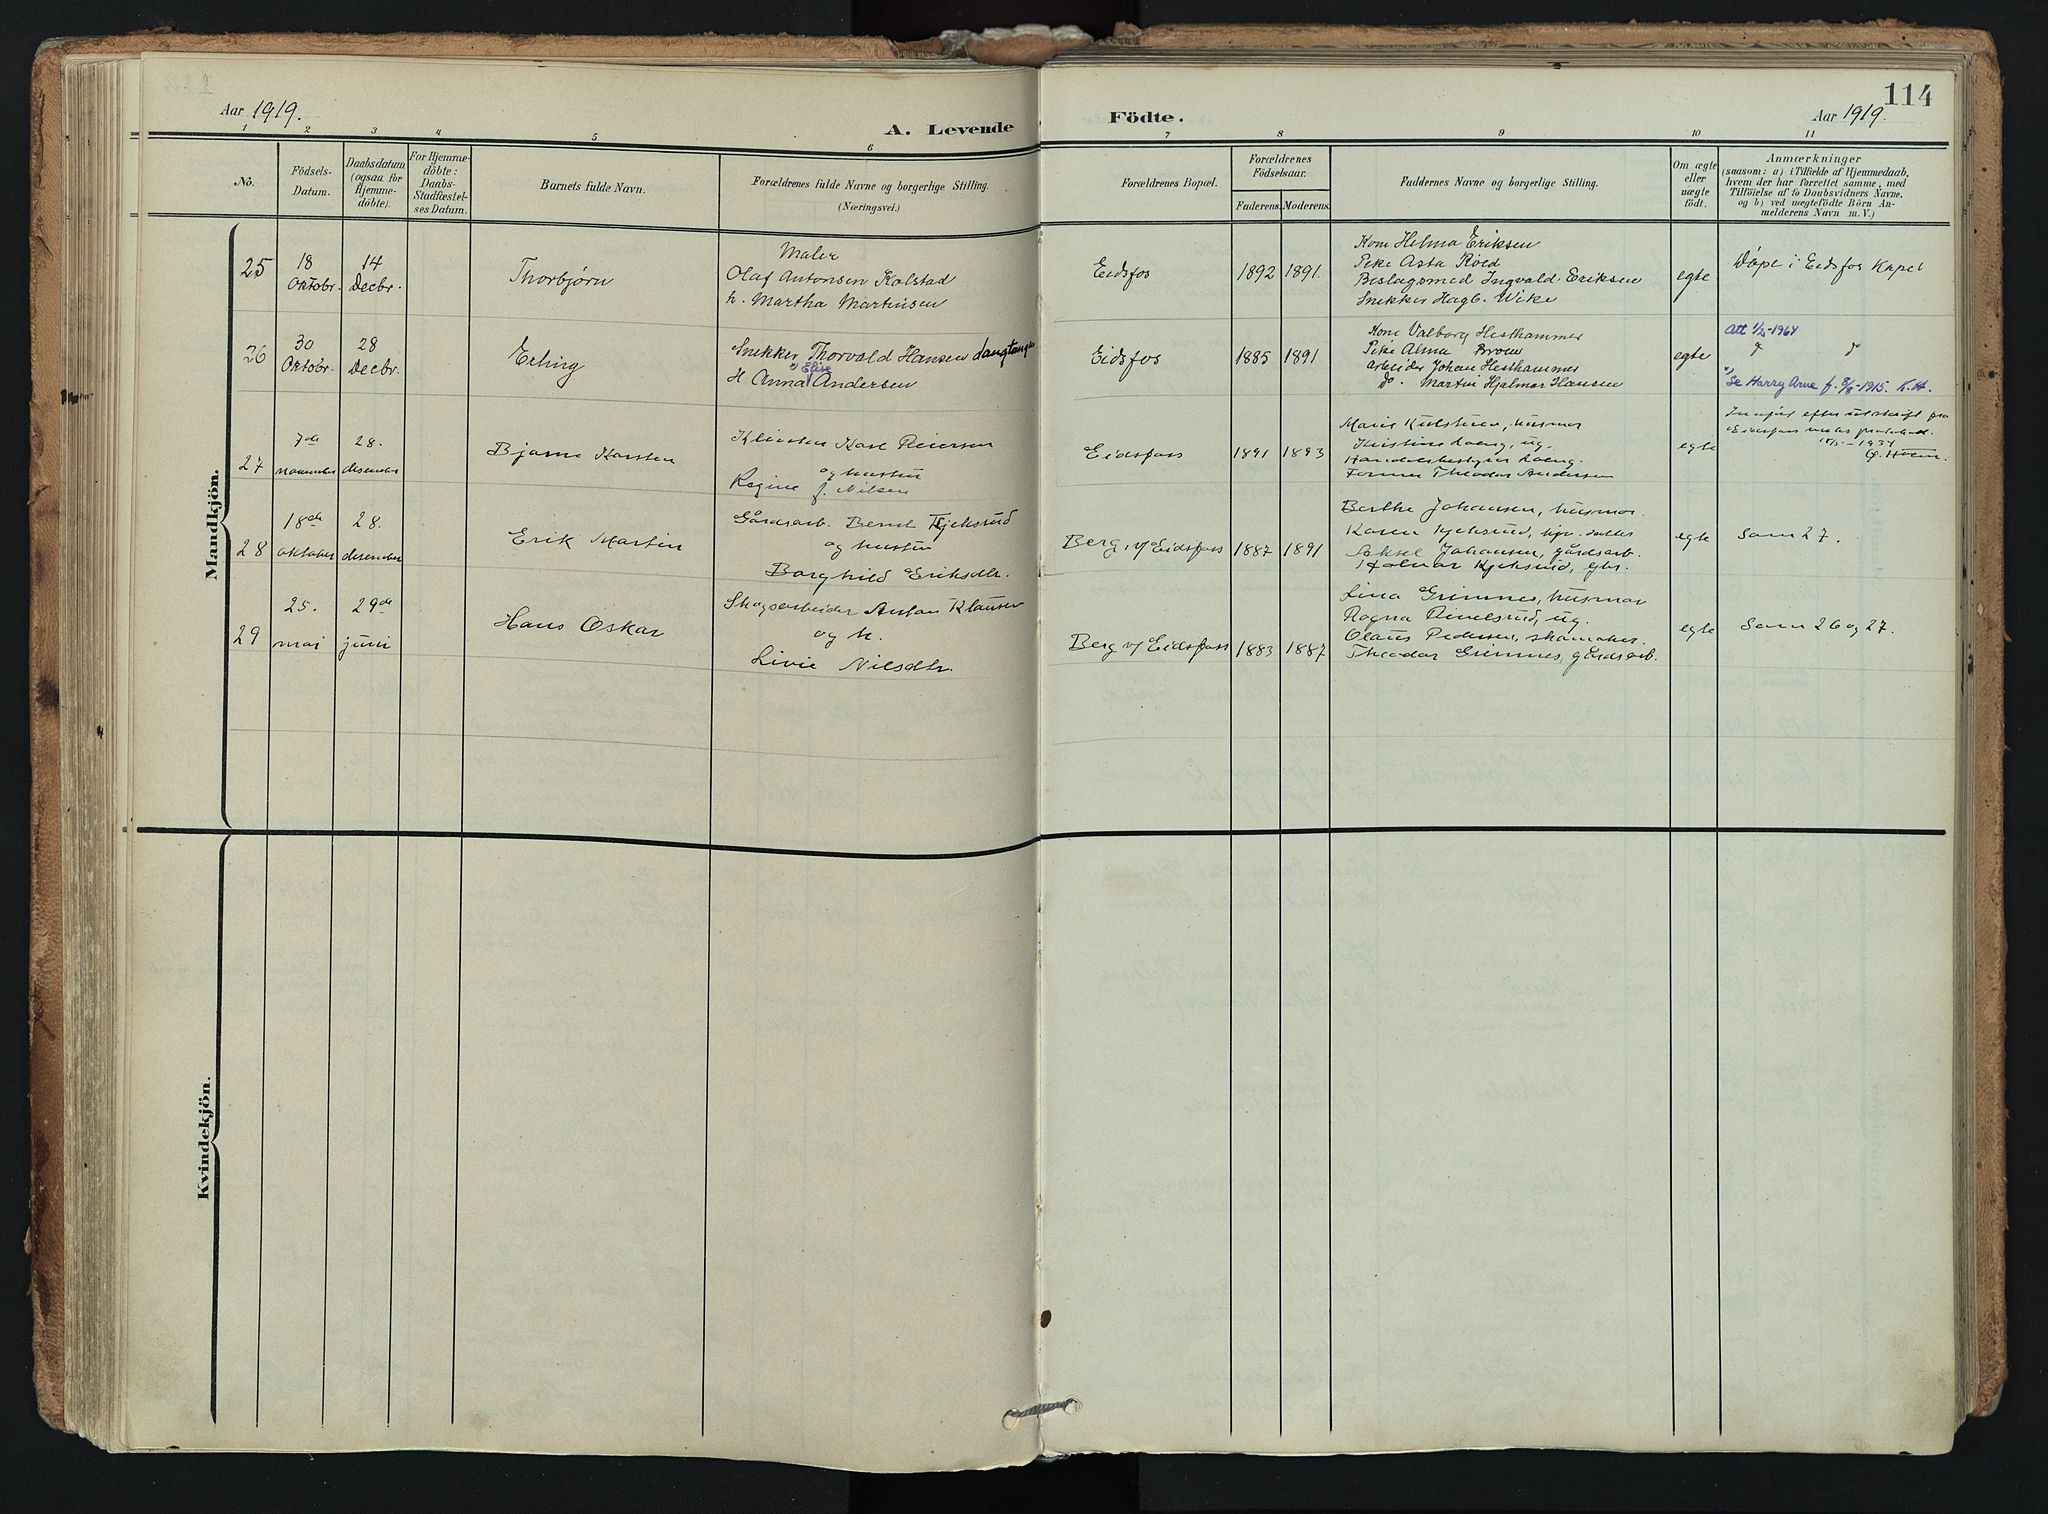 114
Aar 1919.
A. Levende
Födte.
Aar 1919.
1 2 3 4 5 6 7 8 9 10 11
No.
Födsels-
Datum.
Daabsdatum
(ogsaa for
Hjemme-
döbte).
For Hjemme-
döbte:
Daabs-
Stadfæstel-
ses Datum.
Barnets fulde Navn.
Forældrenes fulde Navne og borgerlige Stilling.
(Næringsvei.)
Forældrenes Bopæl.
Forældrenes
Födselsaar.
Faderens. Moderens.
Faddernes Navne og borgerlige Stilling.
Om ægte
eller
uægte
födt.
Anmærkninger
(saasom: a) i Tilfælde af Hjemmedaab,
hvem der har forrettet samme, med
Tilföielse af to Daabsvidners Navne,
og b) ved uægtefödte Börn An-
melderens Navn m. V.)
Mandkjön.
25
18
Oktobr.
14
Decbr.
Thorbjørn
Maler
Olaf Antonsen Kolstad
h. Martha Martinsen
Eidsfos
1892 1891.
Kone Helma Eriksen
Pike Asta Roed
Beslagsmed Ingvald Eriksen
Snekker Hagb. Wike
egte
Døpt i Eidsfos Kapel
26
30
Oktobr.
28
Decbr.
Erling
Snekker Thorvald Hansen Langtangen
Elise
H Anna Andersen
Eidsfos
1885 1891
Kone Valborg Hesthammer
Pike Alma
arbeider Johan Hesthammer
do. Martin Hjalmar Hansen
egte
Att 1/2-1964
Se Harry Arne f. 8/8-1915. K.H.
27
7de
november
28.
desember
Bjarne Karsten
Karl Reiersen
og hustru
Regine f. Nilsen
Eidsfoss
1891 1893
Marie Kulstuen, husmor
Kristine Loeng, ug.
Handelsbestyrer Loeng.
Former Theodor Andersen
egte
Innført efter utskrift fra
Eidsfoss
1934
28
18de
oktober
28.
desember
Erik Martin
Gårdsarb. Bernt Kjeksrud
og hustru
Borghild Eriksdtr.
Berg v/ Eidsfoss
1887 1891
Berthe Johansen, husmor
Karen Kjeksrud,
Johansen, gårdsarb.
Hjalmar Kjeksrud, gbr.
egte
Som 27.
29
25.
mai
29de
juni
Hans Oskar
Skogsarbeider Anton Klausen
og h.
Livie Nilsdtr.
Berg v/ Eidsfoss
1883 1887
Lina Grimnes, husmor
Ragna ug.
Olaus Pedersen, skomaker.
Theodor Grimnes, gårdsarb.
egte
Som 26 og 27.
Kvindekjön.